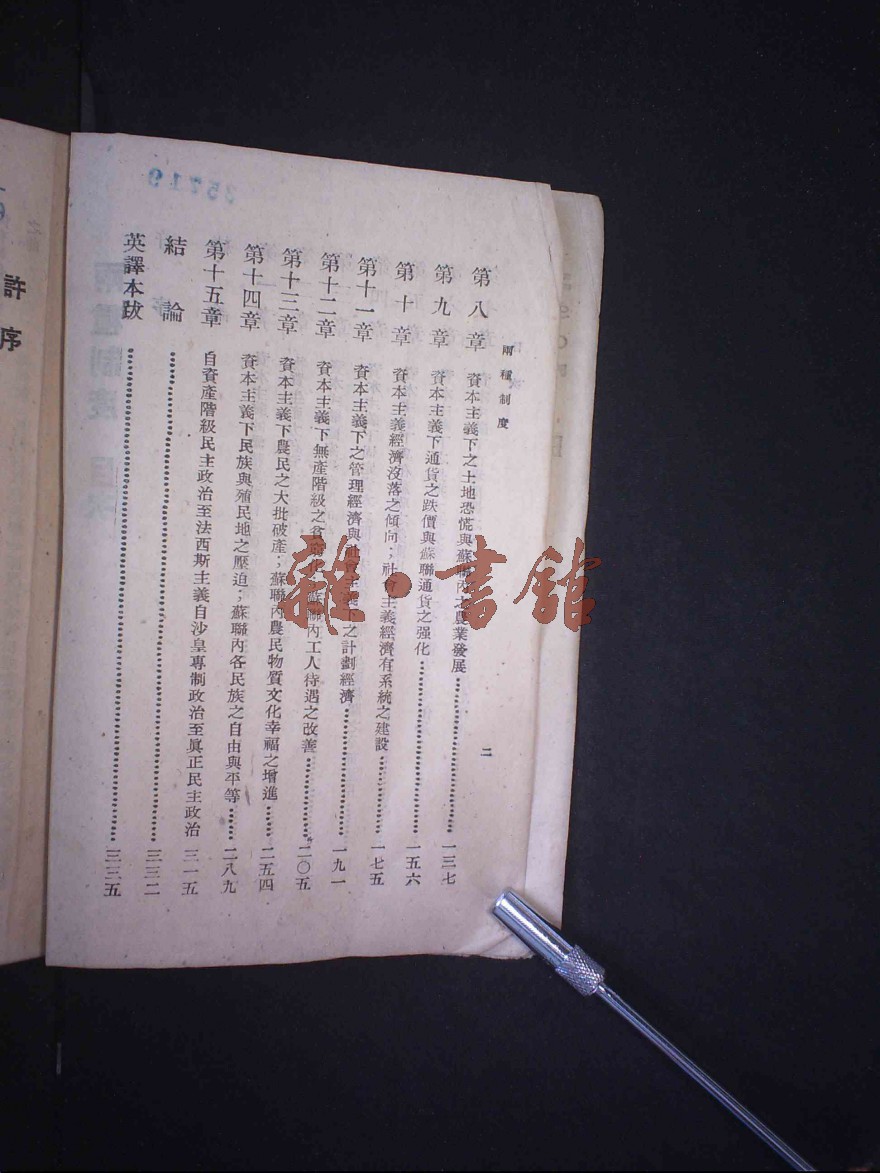 兩種制度
二
第八章 資本主義下之土地恐慌與蘇聯內之農業發展……一三七
第九章 資本主義下通貨之跌價與蘇聯通貨之强化……一五六
第十章 資本主義經濟沒落之傾向；社會主義經濟有系統之建設……一七五
第十一章 資本主義下之管理經濟與社會主義下之計劃經濟……一九一
第十二章 資本主義下無產階級之貧窮化；蘇聯內工人待遇之改善……二〇五
第十三章 資本主義下農民之大批破產；蘇聯內農民物質文化幸福之增進……二五四
第十四章 資本主義下民族與殖民地之壓迫；蘇聯內各民族之自由與平等……二八九
第十五章 自資產階級民主政治至法西斯主義自沙皇專制政治至眞正民主政治 三一五
結論……三三二
英譯本跋……三三五
許序
35719
雜·書館